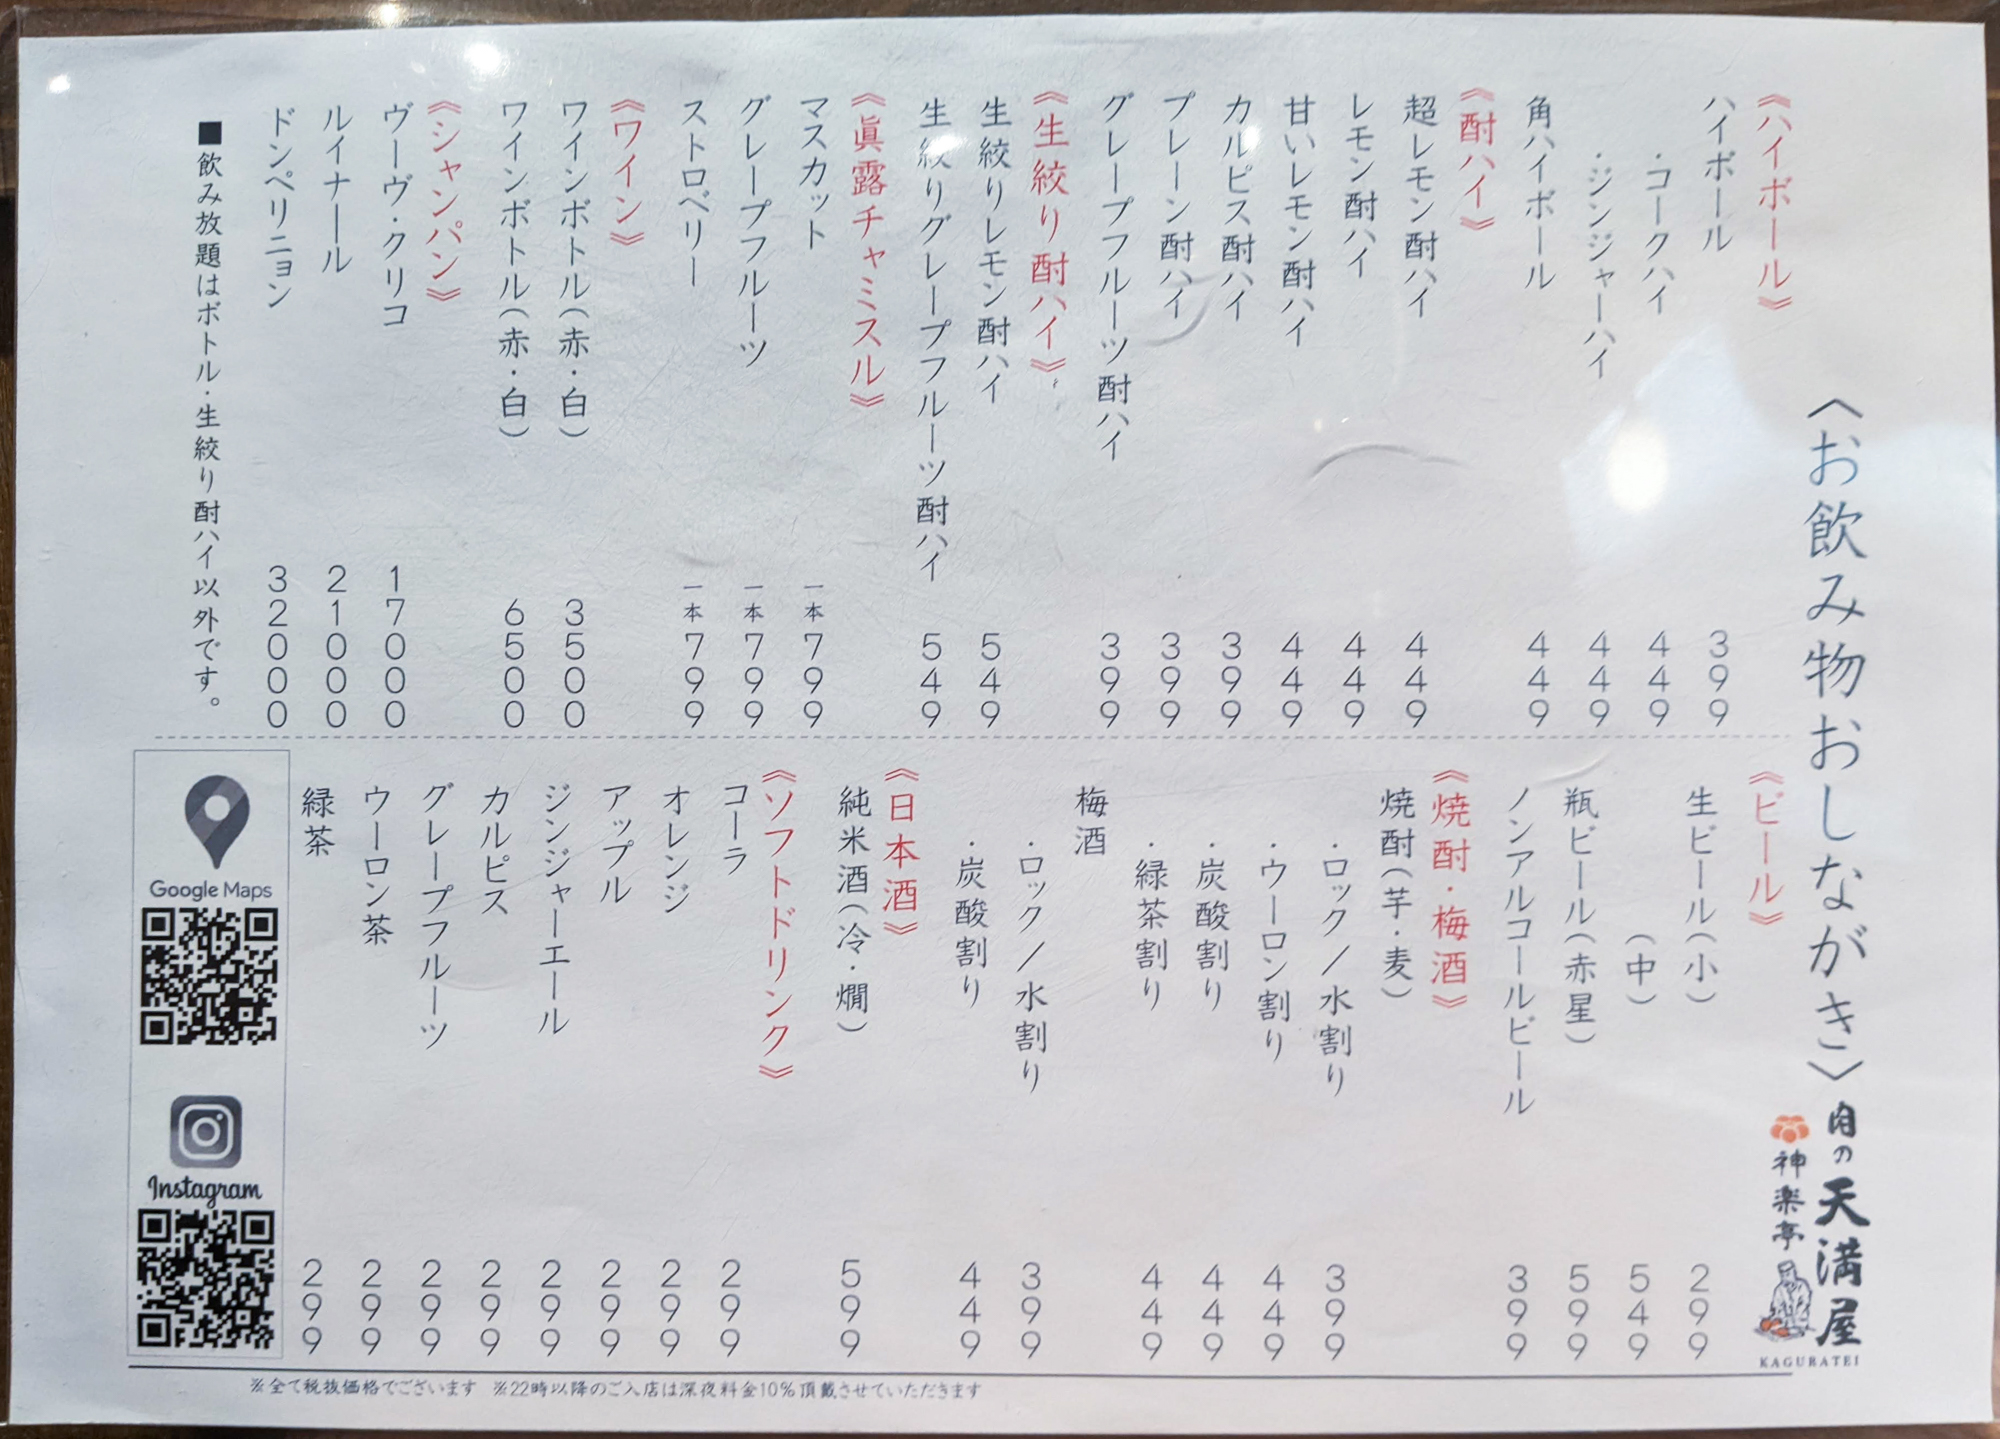 〈お飲み物おしながき〉
肉の天満屋
神楽亭
KAGURATEI
《ハイボール》
ハイボール 399
・コークハイ 449
・ジンジャーハイ 449
角ハイボール 449
《酎ハイ》
超レモン酎ハイ 449
レモン酎ハイ 449
甘いレモン酎ハイ 449
カルピス酎ハイ 399
プレーン酎ハイ 399
グレープフルーツ酎ハイ 399
《生絞り酎ハイ》
生絞りレモン酎ハイ 549
生絞りグレープフルーツ酎ハイ 549
《眞露チャミスル》
マスカット 一本799
グレープフルーツ 一本799
ストロベリー 一本799
《ワイン》
ワインボトル(赤・白) 3500
ワインボトル(赤・白) 6500
《シャンパン》
ヴーヴ・クリコ 17000
ルイナール 21000
ドンペリニョン 32000
■飲み放題はボトル・生絞り酎ハイ以外です。
《ビール》
生ビール(小) 299
(中) 549
瓶ビール(赤星) 599
ノンアルコールビール 399
《焼酎・梅酒》
焼酎(芋・麦)
・ロック/水割り 399
・ウーロン割り 449
・炭酸割り 449
・緑茶割り 449
梅酒
・ロック/水割り 399
・炭酸割り 449
《日本酒》
純米酒(冷・燗) 599
《ソフトドリンク》
コーラ 299
オレンジ 299
アップル 299
ジンジャーエール 299
カルピス 299
グレープフルーツ 299
ウーロン茶 299
緑茶 299
Google Maps
Instagram
※全て税抜価格でございます ※22時以降のご入店は深夜料金10%頂戴させていただきます